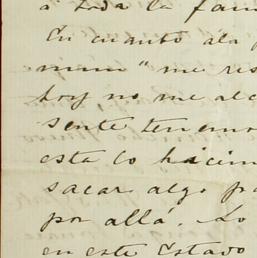 a toda la fam
En cuanto a la
mum" me res
hoy no me alc
sente tenemo
esta lo hicim
sacar algo pa
por allá. Lo
en este Estado